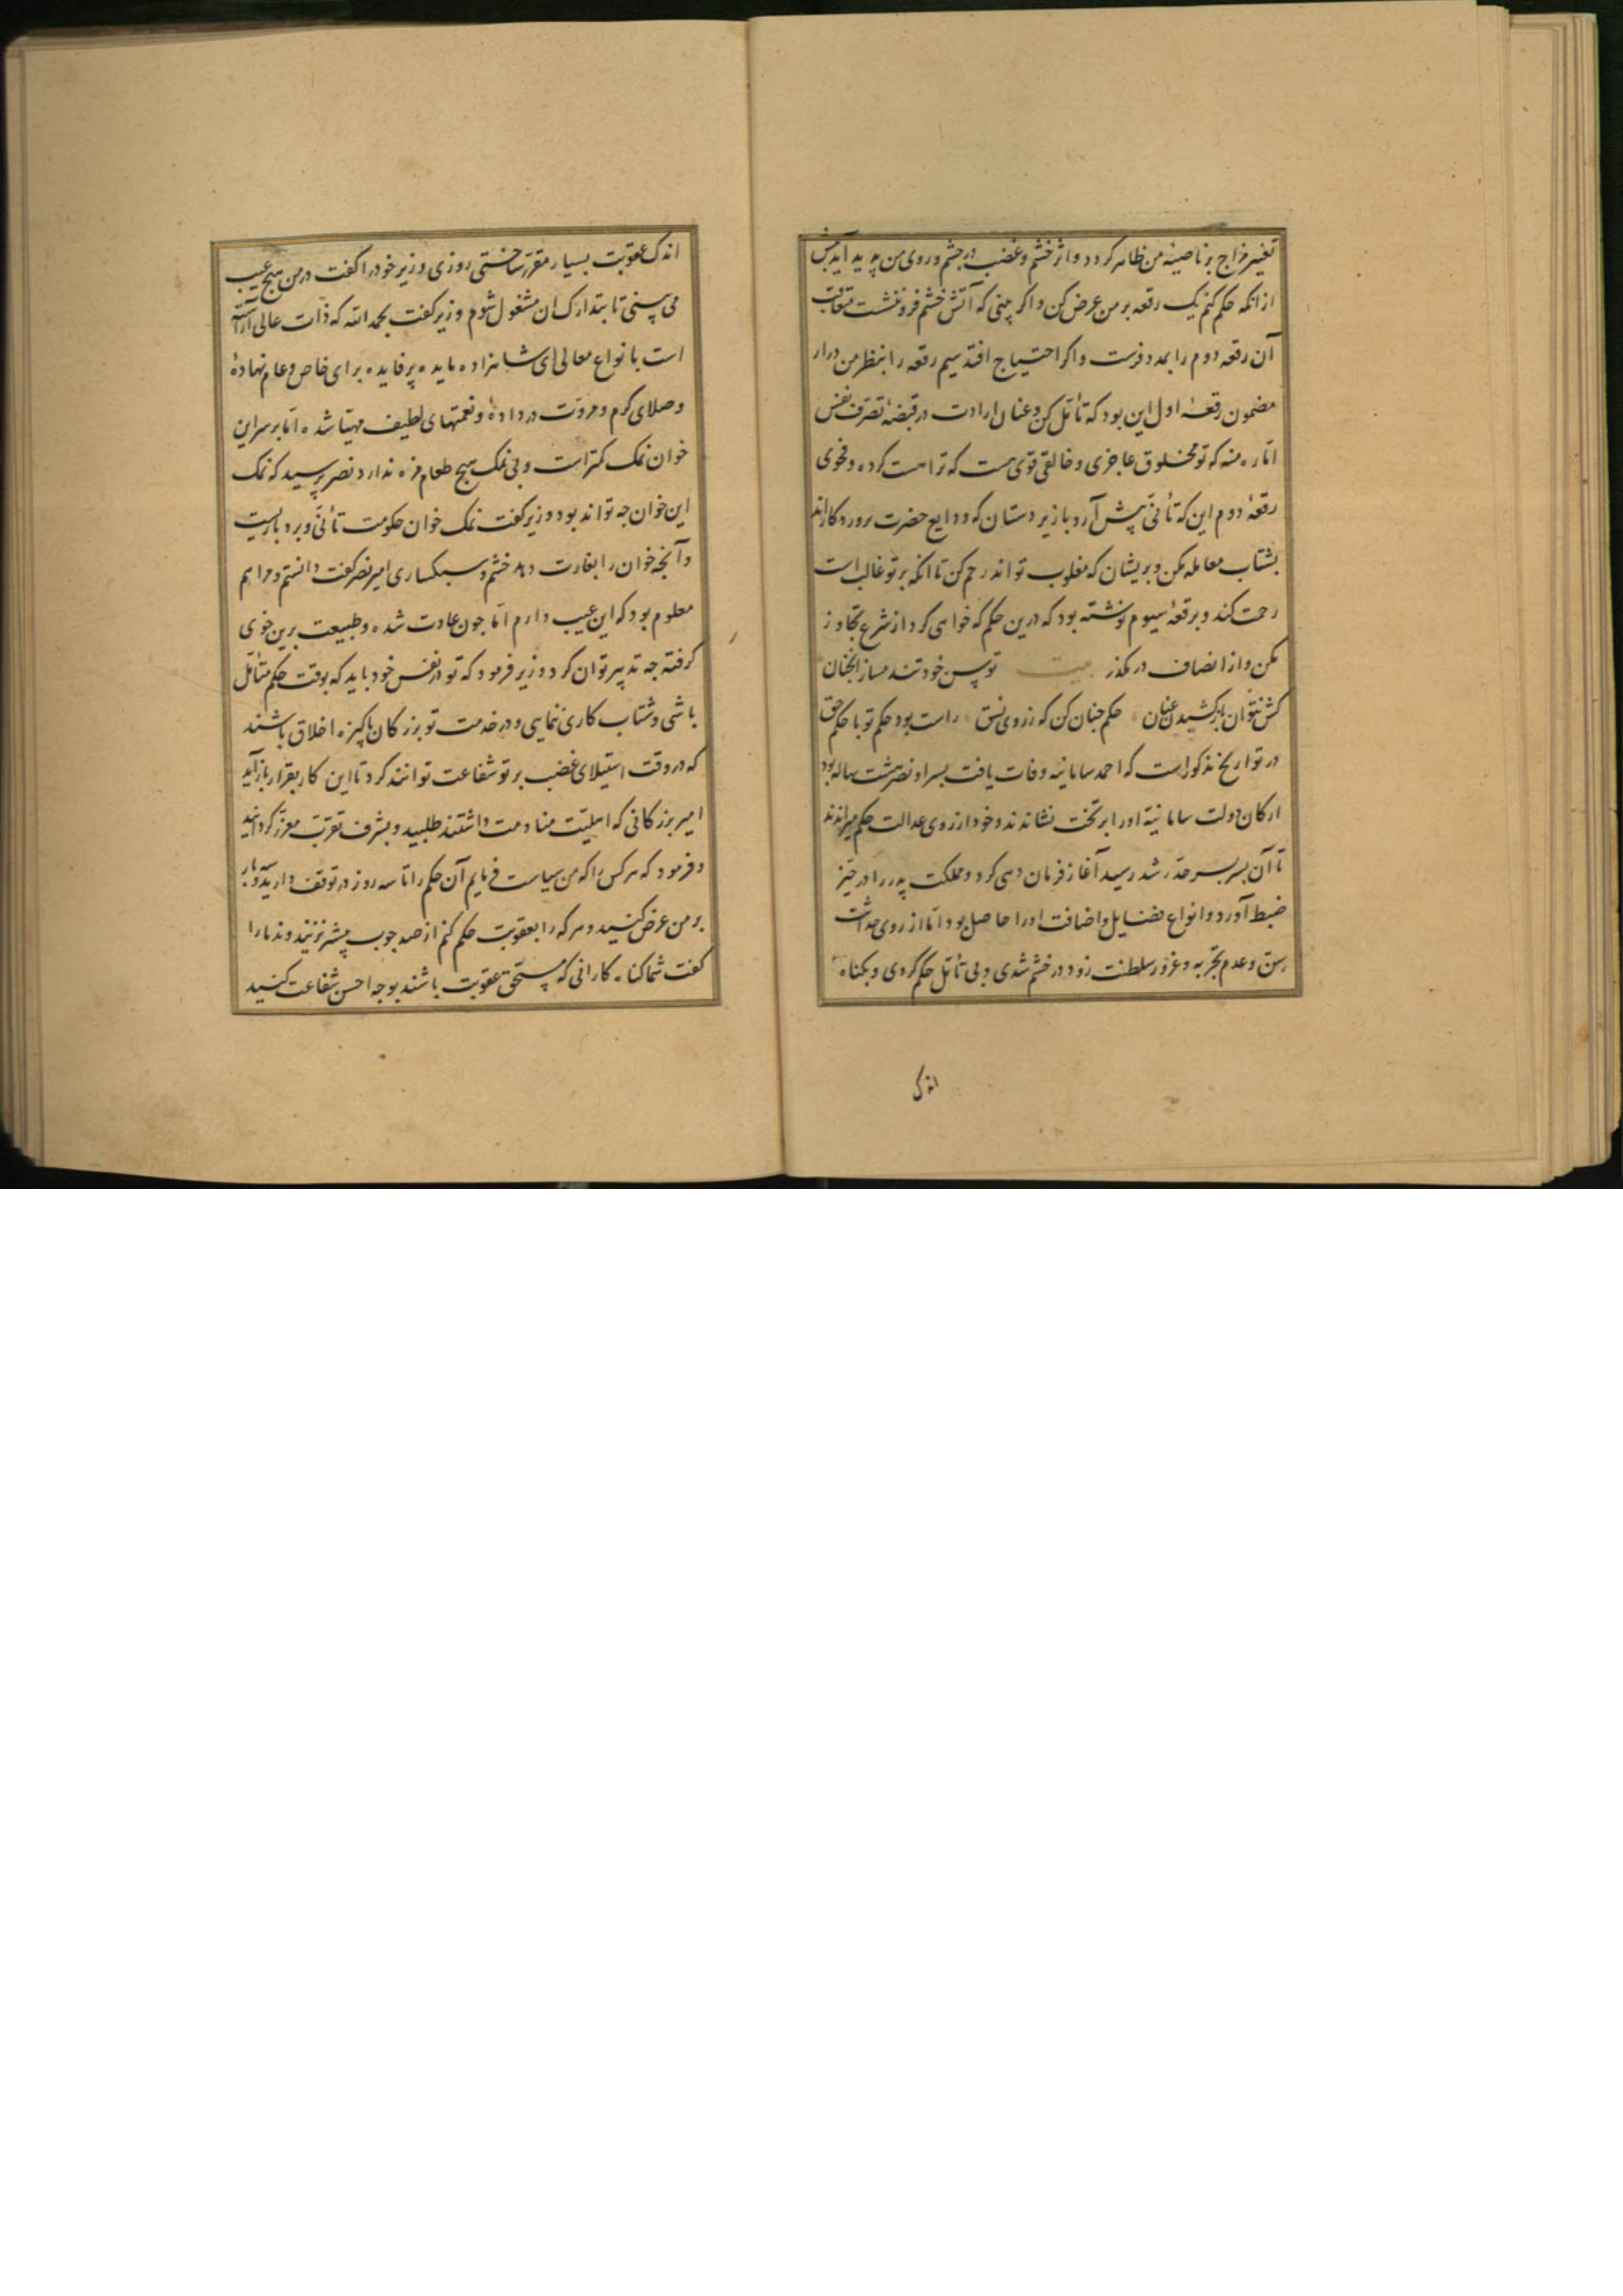 تغیر مزاج بر ناصیهٔ من ظاهر کردد و اثر خشم و غضب در چشم و روی من پدید آید پیش
ازانکه حکم کنم یک رقعه بر من عرض کن و اکر بینی که آتش خشم فرو ننشست متعاقب
آن رقعه دوم را بمدد فرست و اکر احتیاج افتد سیم رقعه را بنظر من درار
مضمون رقعهٔ اول این بود که تأمل کن و عنان ارادت در قبضهٔ تصرف نفس
اماره منه که تو مخلوق عاجزی و خالقی قوی هست که ترا هست کرده و فحوی
رقعهٔ دوم این که تأنی پیش آر و با زیر دستان که ودایع حضرت پروردکاراند
بشتاب معامله مکن و بریشان که مغلوب تواند رحم کن تا انکه بر تو غالب است
رحمت کند و بر رقعهٔ سیوم نوشته بود که درین حکم که خواهی کرد از شرع تجاوز
مکن و از انصاف در مکذر بیت توسن خود تند مساز انچنان
کش نتوان باز کشیدن عنان حکم چنان کن که ز روی نسق راست بود حکم تو با حکم حق
در تواریخ مذکور است که احمد سامانیه وفات یافت پسر او نصر هشت ساله بود
ارکان دولت سامانیه او را بر تخت نشاندند و خود از روی عدالت حکم میراندند
تا آن پسر بسر حد رشد رسید آغاز فرمان دهی کرد و مملکت پدر را در حیز
ضبط آورد و انواع فضایل و اضافت او را حاصل بود اما از روی حداثت
سن و عدم تجربه و غرور سلطنت زود در خشم شدی و بی تأمل حکم کردی و بکناه
اندک
اندک عقوبت بسیار مقرر ساختی روزی وزیر خود را کفت در من هیچ عیب
می بینی تا بتدارک ان مشغول شوم وزیر کفت بحمد الله که ذات عالی آراسته
است بانواع معالی ای شاهزاده مایده پر فایده برای خاص و عام نهادهٔ
و صلای کرم و مروت در دادهٔ و نعمتهای لطیف مهیا شده اما بر سر این
خوان نمک کمتر است و بی نمک هیچ طعام مزه ندارد نصر پرسید که نمک
این خوان چه تواند بود وزیر کفت نمک خوان حکومت تأنی و بردباریست
و آنچه خوان را بغارت دهد خشم و سبکساری امیر نصر کفت دانستم و مرا هم
معلوم بود که این عیب دارم اما چون عادت شده و طبیعت برین خوی
کرفته چه تدبیر توان کرد وزیر فرمود که تو در نفس خود باید که بوقت حکم متأمل
باشی و شتاب کاری ننمایی و در خدمت تو بزرکان پاکیزه اخلاق باشند
که در وقت استیلای غضب بر تو شفاعت توانند کرد تا این کار بقرار باز آید
امیر بزرکانی که اهلیت منادمت داشتند طلبید و بشرف تقرب معزز کردانید
و فرمود که هر کس را که من سیاست فرمایم آن حکم را تا سه روز در توقف دارید و سه بار
بر من عرض کنید و هر که را بعقوبت حکم کنم از صد چوب بیشتر نزنید و ندما را
کفت شما کناه کارانی که مستحق عقوبت باشند بوجه احسن شفاعت کنید